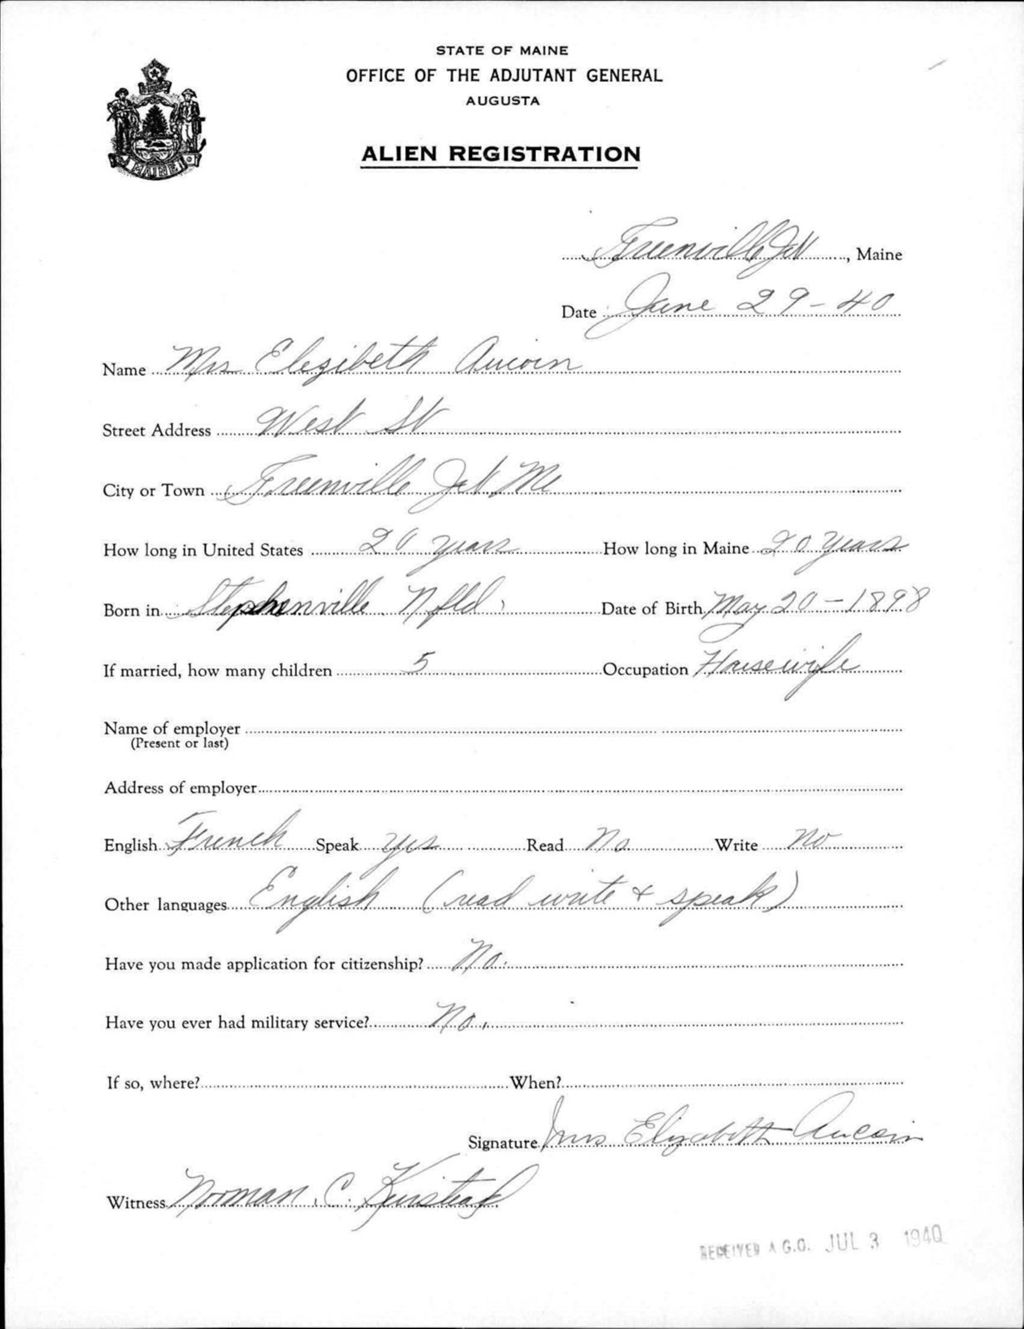 STATE OF MAINE
OFFICE OF THE ADJUTANT GENERAL
AUGUSTA
ALIEN REGISTRATION
MAINE
Greenville Jct, Maine
Date June 29-40
Name Mrs Elezibeth Aucoin
Street Address West St
City or Town Greenville Jct Me
How long in United States 20 years How long in Maine 20 years
Born in Stephenville Nfld. Date of Birth May 20-1898
If married, how many children 5 Occupation Housewife
Name of employer
(Present or last)
Address of employer
English French Speak yes Read No Write No
Other languages English (read write + speak)
Have you made application for citizenship? No.
Have you ever had military service? No.
If so, where? When?
Signature Mrs Elizabeth Aucoin
Witness Norman C.
RECEIVED A.G.O. JUL 3 1940